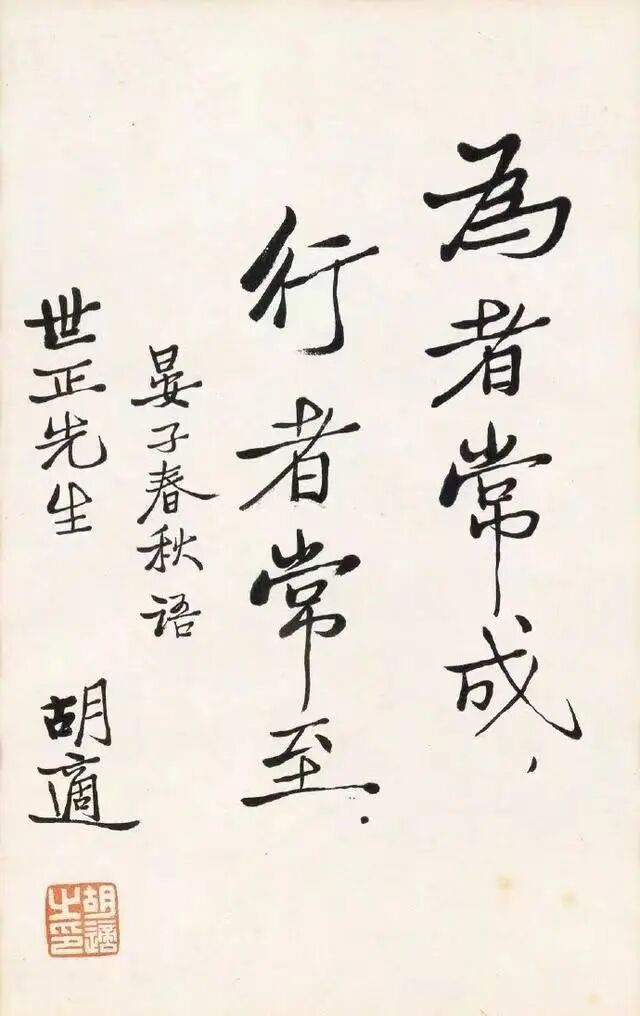 為者常成，
行者常至．
晏子春秋語
世正先生
胡適
胡適之印